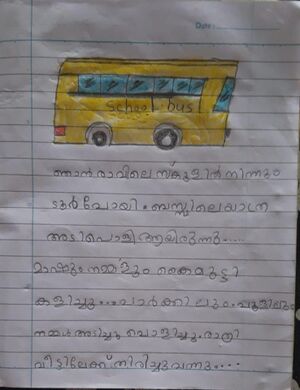 Date:
school bus
ഞാൻ രാവിലെ സ്കൂളിൽ നിന്നും
ടൂർ പോയി. ബസ്സിലെ യാത്ര
അടിപൊളി ആയിരുന്നു.....
മാഷും നമ്മളും കൈമുട്ടി
കളിച്ചു...പാർക്കിലും.പൂളിലും
നമ്മൾ അടിച്ചു പൊളിച്ചു.രാത്രി
വീട്ടിലേക്ക് തിരിച്ചുവന്നു....